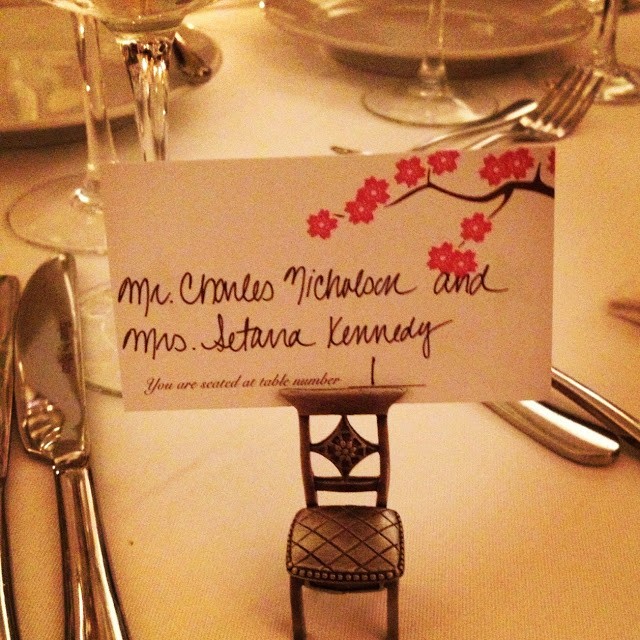 Mr. Charles Nicholson and
Mrs. Setara Kennedy
You are seated at table number 1